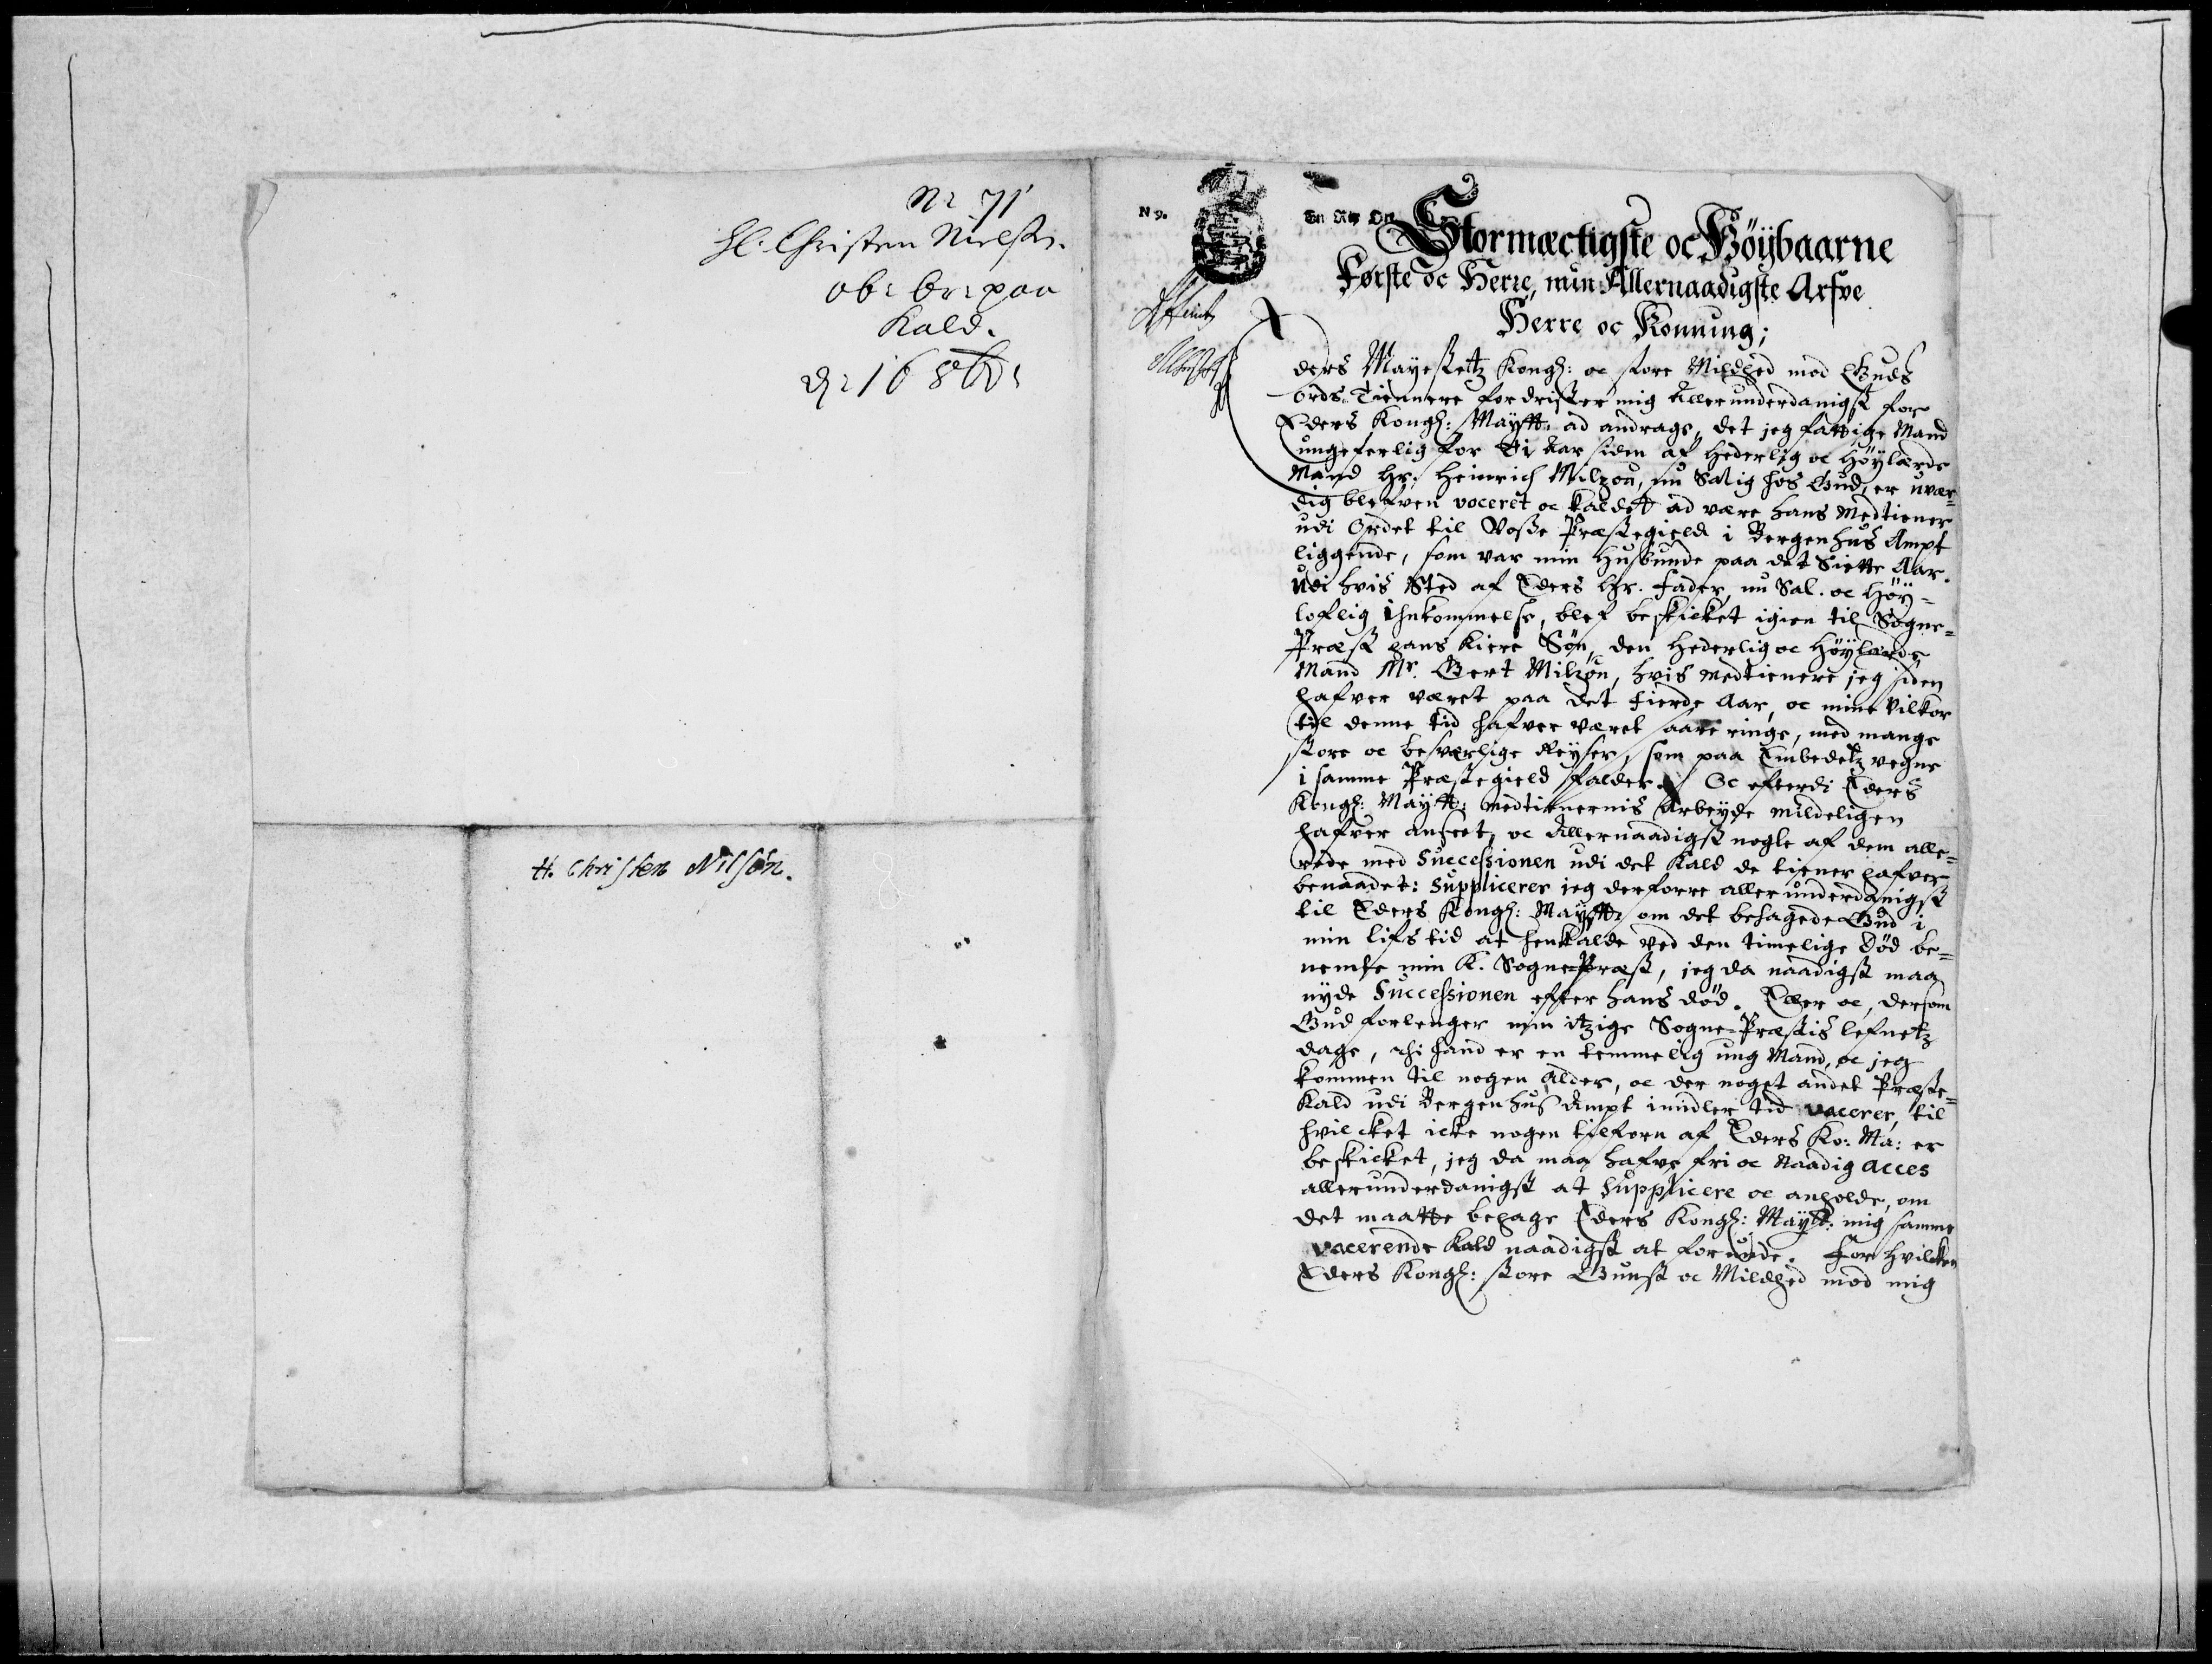 Nr 71
Hr. Christen Nielsen.
ob: br: paa
Kald.
H. Christen Nilsøn.
N 9.
En Rix Ort
Stormæctigste oc Høÿbaarne
Første oc Herre, min Allernaadigste Arfve
Herre oc Konning;
Eders Mayestetz Kongl: oc store Mildhed mod Guds
ords Tiennere fordrister mig Allerunderdanigst for
Eders Kongl: Maÿtt: ad andrage, det jeg fattige Mand
ungeferlig for Ti Aar siden af Hederlig oc Høylærde
Mand Hr. Heinrich Milzou, nu Salig hos Gud, er uvær-
dig blefven voceret oc kaldet ad være hans Medtiener
udi Ordet til Vosse Præstegield i Bergenhus Ampt
liggende, som var min Husbunde paa det Siette Aar.
Udi hvis Sted af Eders Hr. Fader, nu Sal. oc Høy-
loflig Ihukommelse, blef beskicket igien til Sogne-
Præst hans kiere Søn, den Hederlig oc Høylærde
Mand Mr. Gert Milzou, hvis Medtienere jeg siden
hafver været paa det fierde Aar, oc mine Vilkor
til denne tid hafver været saare ringe, med mange
store oc besværlige Reyser, som paa Embedetz vegne
i samme Præstegield falder. Oc efterdi Eders
Kongl: Maÿtt: medtienernis Arbeyde mildeligen
hafver anseet, oc Allernaadigst nogle af dem alle-
rede med Successionen udi det Kald de tiener hafver
benaadet: Supplicerer jeg derforre allerunderdanigst
til Eders Kongl: Maÿtt: om det behagede Gud i
min lifs tid at henkalde ved den timelige Død be-
nemte min K. Sogne-Præst, jeg da naadigst maa
nyde Successionen efter hans død. Eller oc, dersom
Gud forlenger min itzige Sogne-Præstis lefnetz
dage, thi hand er en temmelig ung Mand, oc jeg
kommen til nogen Alder, oc der noget andet Præste-
Kald udi Bergenhus Ampt imidler tid vacerer, til
hvilcket icke nogen tilforn af Eders Ko: Ma: er
beskicket, jeg da maa hafve fri oc Naadig acces
allerunderdanigst at Supplicere oc anholde, om
det maatte behage Eders Kongl: Maytt: mig samme
vacerende Kald naadigst at forunde. For hvilcken
Eders Kongl: store Gunst oc Mildhed mod mig